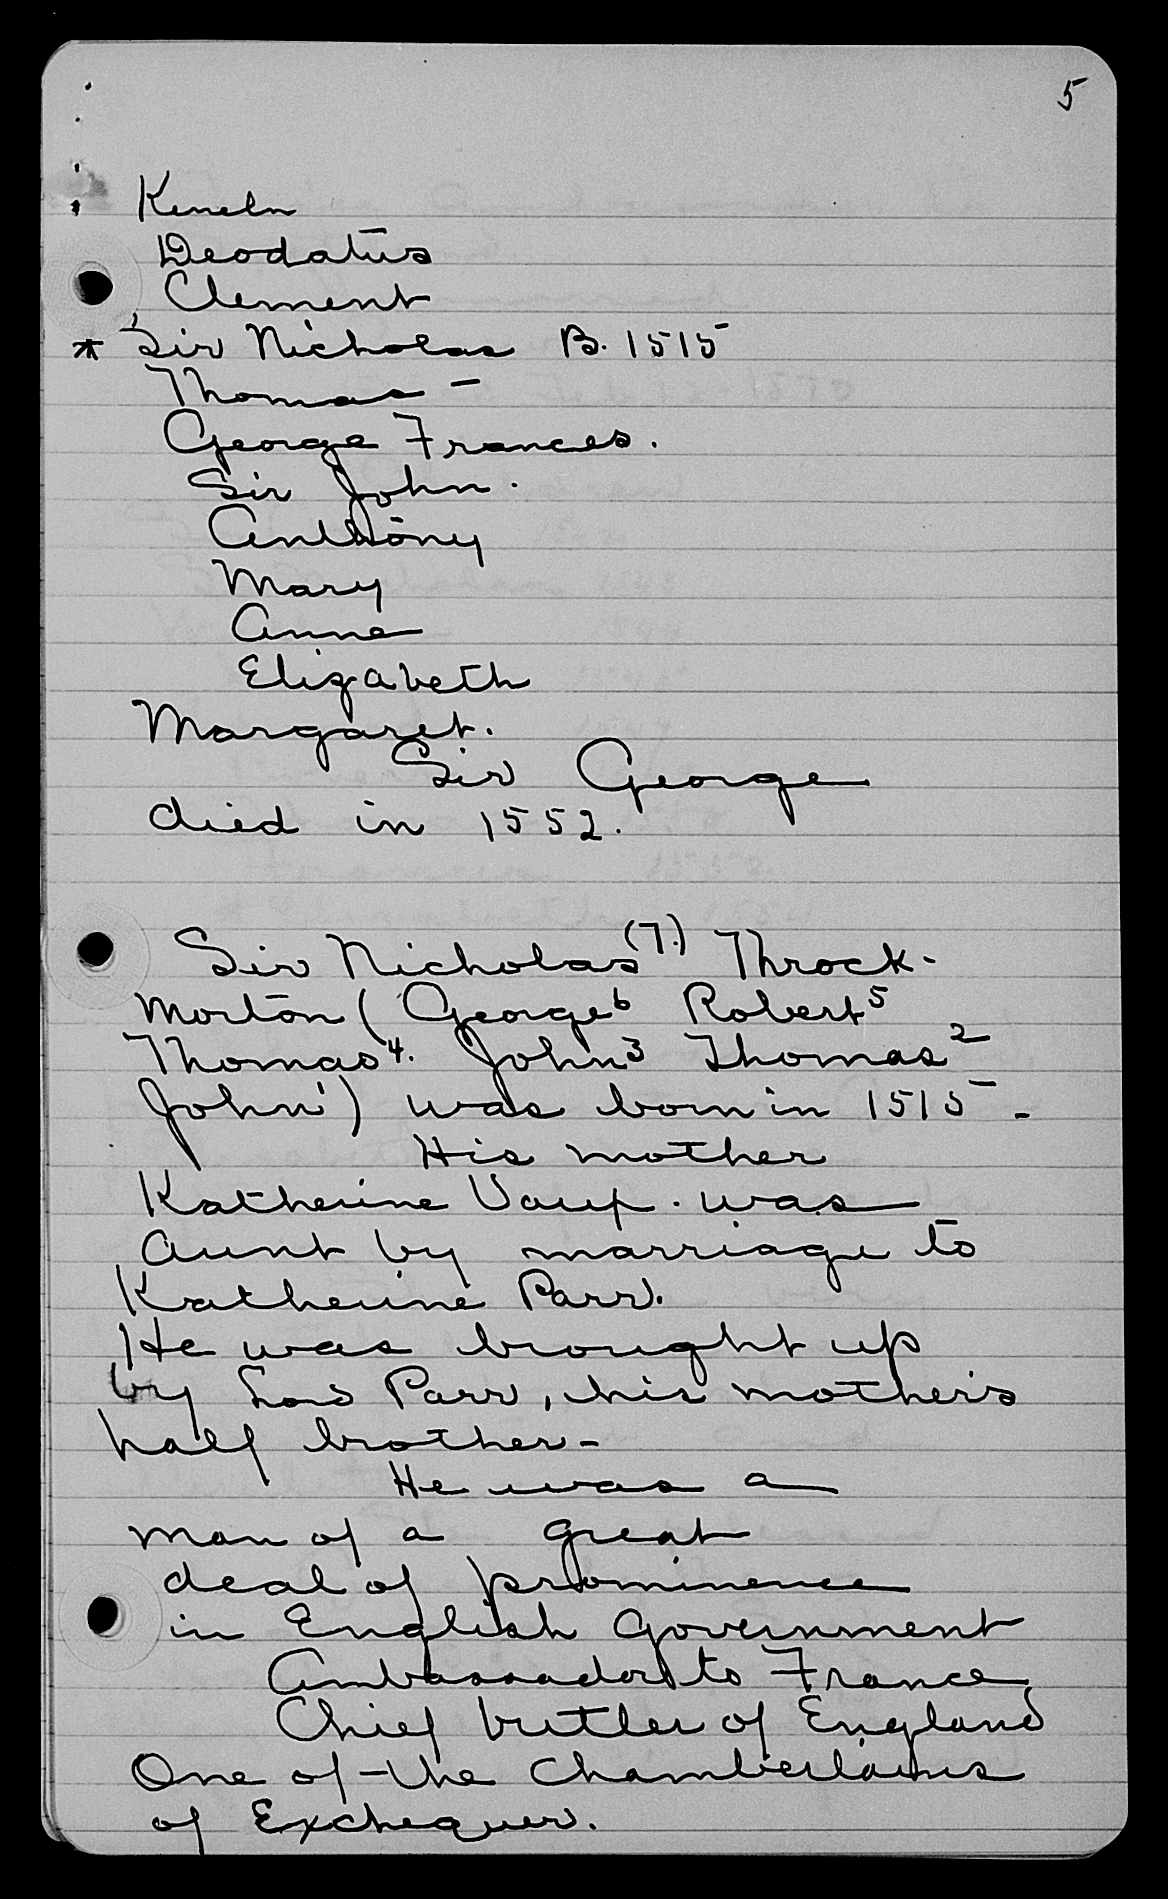 5
Keneln
Deodatus
Clement
* Sir Nicholas B. 1515
Thomas -
George Frances.
Sir John.
Anthony
Mary
Anne
Elizabeth
Margaret.
Sir George
died in 1552.
Sir Nicholas (7.) Throck-
morton ( George 6 Robert 5
Thomas 4. John 3 Thomas 2
John 1 ) was born in 1515 -
His mother
Katherine Vaux. was
Aunt by marriage to
Katherine Parr.
He was brought up
by Lord Parr, his mother's
half brother -
He was a
man of a great
deal of prominence
in English Government
Ambassador to France
Chief butler of England
One of the Chamberlains
of Exchequer.